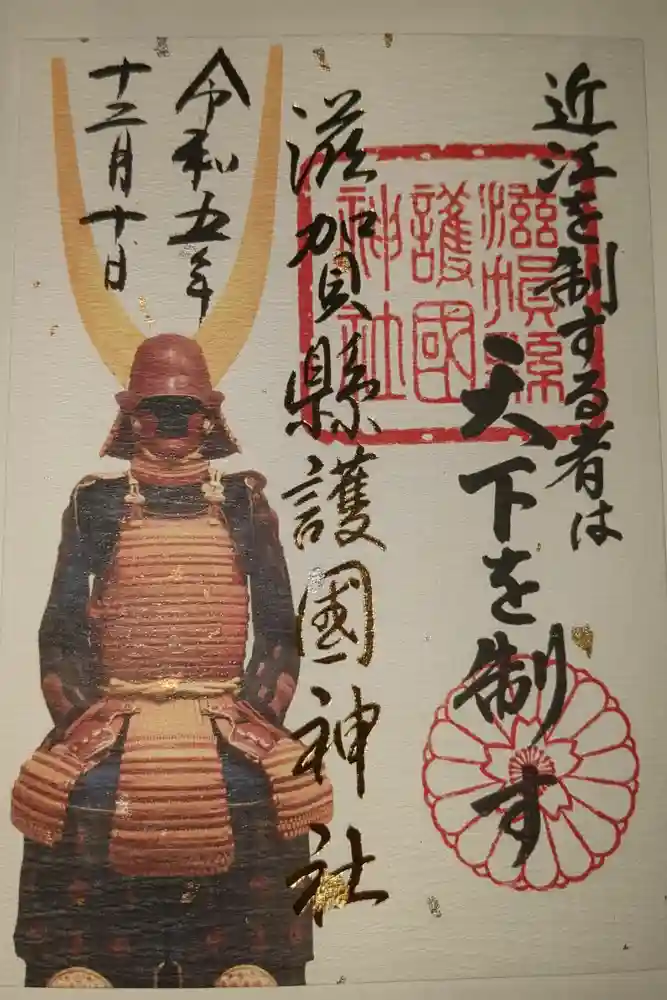 近江を制する者は
天下を制す
滋賀縣
護國
神社
滋賀縣護國神社
令和五年
十二月十日